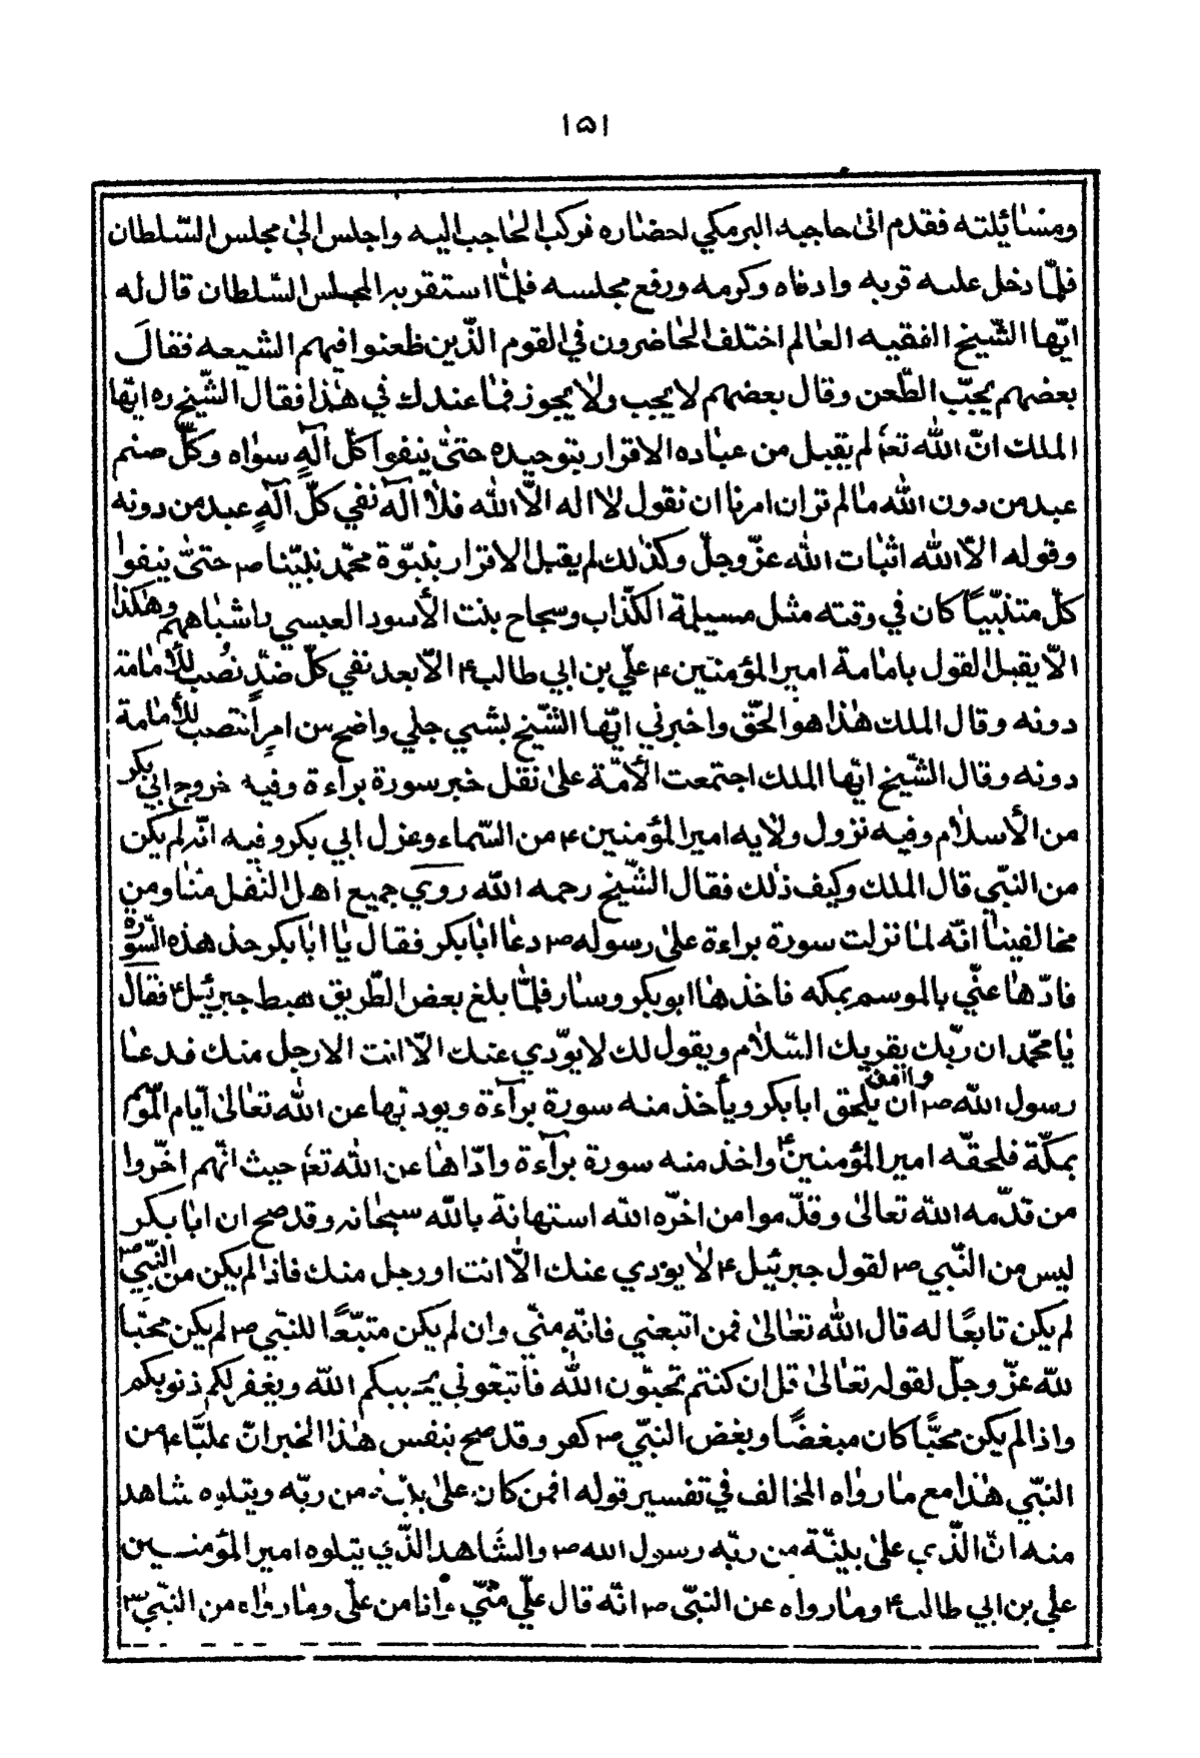 ١۵١
ومسائلته فقدم الى حاجبه البرمكي لحضاره فركب الحاجب اليه واجلس الى مجلس السّلطان
فلمّا دخل عليه قربه وادناه وكرمه ورفع مجلسه فلمّا استقر به المجلس السّلطان قال له
ايّها الشّيخ الفقيه العالم اختلف الحاضرون في القوم الّذين طعنوا فيهم الشيعه فقال
بعضهم يجبّ الطّعن وقال بعضهم لا يجب ولا يجوز فما عندك في هذا فقال الشّيخ ره ايّها
الملك انّ الله تعا لم يقبل من عباده الاقرار بتوحيده حتّى ينفوا كلّ آلهٍ سواه وكلّ صنم
عبد من دون الله ما لم تر ان امرنا ان نقول لا اله الّا الله فلا آله نفي كلّ آلهٍ عبد من دونه
وقوله الّا الله اثبات الله عزّ وجلّ وكذلك لم يقبل الاقرار بنبوّة محمّد نبيّنا ص حتّى ينفوا
كلّ متنبّيًا كان في وقته مثل مسيلمة الكذّاب وسجاح بنت الأسود العبسي باشباههم وهكذا
الّا يقبل القول بامامة امير المؤمنين ع علّي بن ابي طالب ع الّا بعد نفي كلّ ضدٍّ نصُب للأمامة
دونه وقال الملك هذا هو الحّق واخبرني ايّها الشّيخ بشيي جلي واضح من امرٍ انتصب للأمامة
دونه وقال الشّيخ ايّها الملك اجتمعت الأمّة على نقل خبر سورة برآءة وفيه خروج ابي بكر
من الأسلام وفيه نزول ولايه امير المؤمنين ع من السّماء وعزل ابي بكر وفيه انّه لم يكن
من النبّي قال الملك وكيف ذلك فقال الشّيخ رحمه الله روي جميع اهل النقل منّا ومن
مخالفينا انّه لما نزلت سورة براءة على رسوله ص دعا ابا بكر فقال يا ابا بكر خذ هذه السّورة
فادّها عنّي بالموسم بمكه فاخذها ابو بكر وسار فلمّا بلغ بعض الطّريق هبط جبرئيل ع فقال
يا محمّد ان ربّك يقريك السّلام ويقول لك لا يوّدي عنك الّا انت الا رجل منك فدعا
رسول الله ص ان يلحق ابا بكر ويأخذ منه سورة برآءة ويوديها عن الله تعالى ايّام الموسم
بمكّة فلحقه امير المؤمنين ع واخذ منه سورة برآءة وادّاها عن الله تعا حيث انّهم اخّروا
من قدّمه الله تعالى وقدّموا من اخّره الله استهانة بالله سبحانه وقد صح ان ابا بكر
ليس من النّبي ص لقول جبرئيل ع لا يؤدي عنك الّا انت او رجل منك فاذا لم يكن من النّبيّ ص
لم يكن تابعًا له قال الله تعالى فمن اتبعني فانّه منّي وان لم يكن متبّعًا للنبّي ص لم يكن محبّا
لله عزّ وجلّ لقوله تعالى قل ان كنتم تحبّون الله فاتبعوني يحببكم الله ويغفر لكم ذنوبكم
واذا لم يكن محبًّا كان مبغضًا وبغض النبّي ص كفر وقد صح بنفس هذا الخبر انّ عليّا ع من
النبّي هذا مع ما رواه المخالف في تفسير قوله افمن كان على بيّنة من ربّه ويتلوه شاهد
منه انّ الّذي على بيّنة من ربّه رسول الله ص والشّاهد الّذي يتلوه امير المؤمنين
علي بن ابي طالب ع وما رواه عن النبّى ص انّه قال علّي منّي وانا من علّى وما رواه من النبّي ص